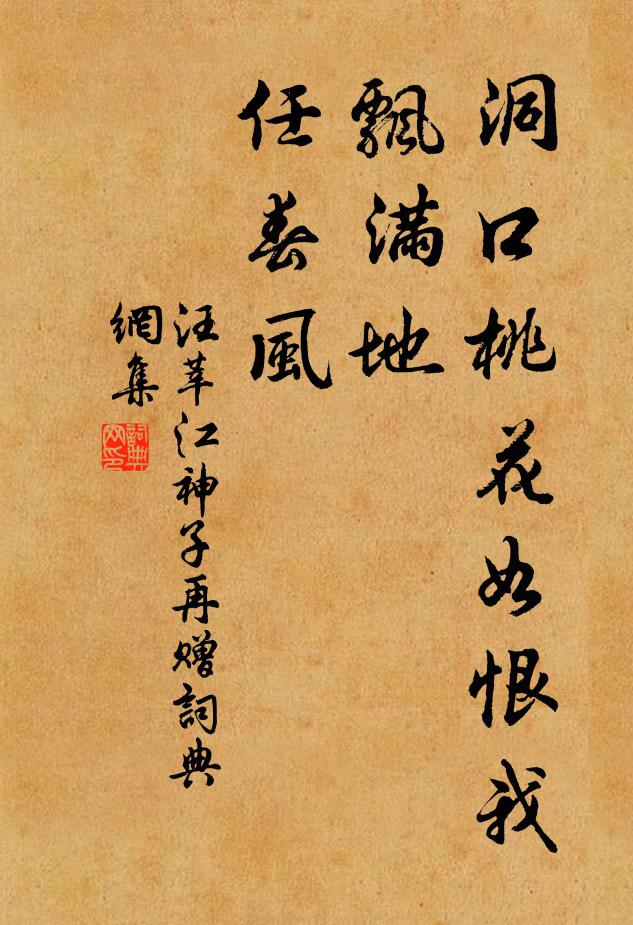 洞口桃花如恨我
飄满地
任春風
汪莘江神子再赠詞典
網集
詞典
网印